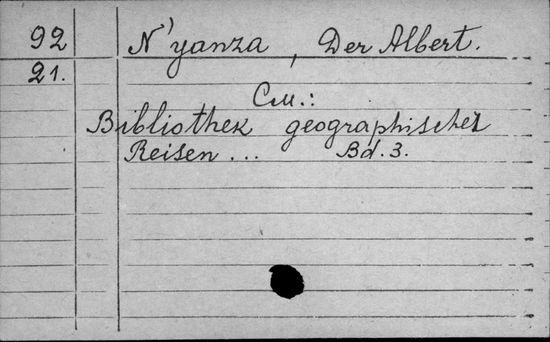 92 N'yanza, Der Albert.
21.
См.:
Bibliothek geographischer
Reisen ... Bd. 3.